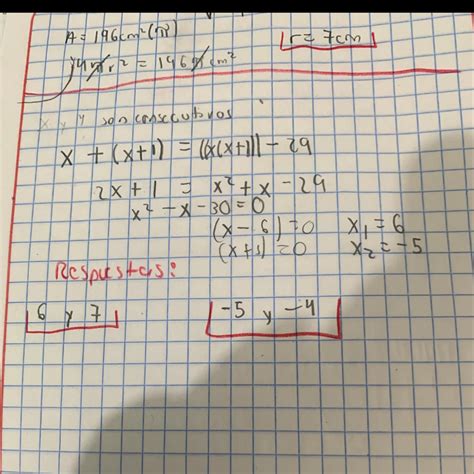 A = 196 cm² (π)
r = 7 cm
4πr² = 196π cm²
x y y son consecutivos
x + (x+1) = ((x(x+1)) - 29
2x + 1 = x² + x - 29
x² - x - 30 = 0
(x - 6) = 0 x₁ = 6
(x + 5) = 0 x₂ = -5
Respuestas:
6 y 7
-5 y -4